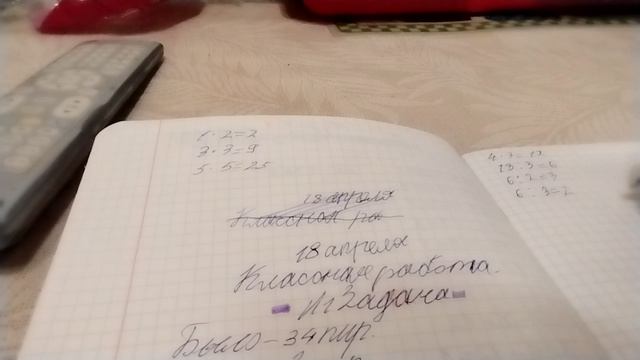 1 · 2 = 2
3 · 3 = 9
5 · 5 = 25
18 апреля
Классная ра
18 апреля
Классная работа.
Задача
Было - 34 пир.
6 : 2 = 3
6 : 3 = 2